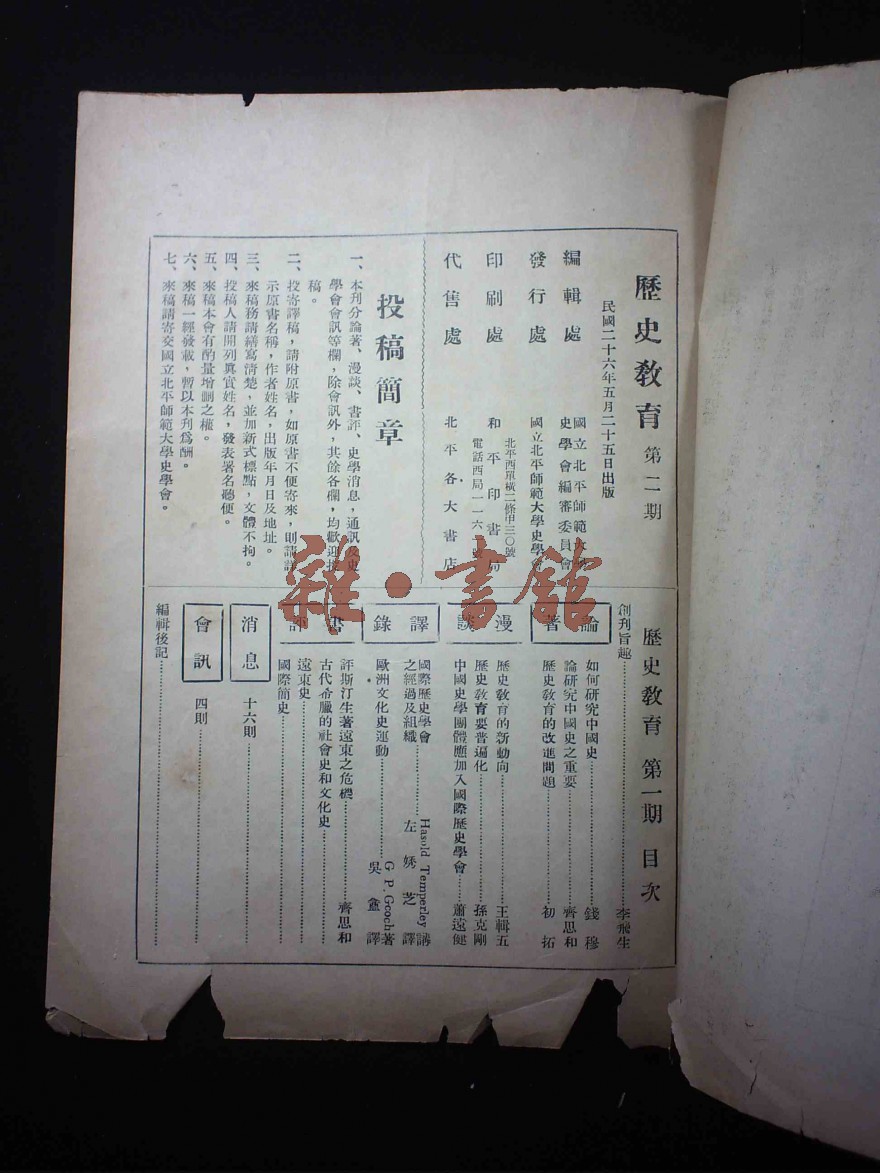 歷史敎育 第二期
民國二十六年五月二十五日出版
編輯處 國立北平師範大學
史學會編審委員會
發行處 國立北平師範大學史學會
印刷處 和平印書局
北平西單橫二條甲三〇號
電話西局一一六 號
代售處 北平各大書店
投稿簡章
一、本刊分論著、漫談、書評、史學消息，通訊及史
學會會訊等欄，除會訊外，其餘各欄，均歡迎投
稿。
二、投寄譯稿，請附原書，如原書不便寄來，則請詳
示原書名稱，作者姓名，出版年月日及地址。
三、來稿務請繕寫清楚，並加新式標點，文體不拘。
四、投稿人請開列眞實姓名，發表署名聽便。
五、來稿本會有酌量增刪之權。
六、來稿一經發載，暫以本刊爲酬。
七、來稿請寄交國立北平師範大學史學會。
歷史敎育 第一期 目次
創刊旨趣 李飛生
論著
如何研究中國史 錢穆
論研究中國史之重要 齊思和
歷史敎育的改進問題 初拓
漫談
歷史敎育的新動向 王輯五
歷史敎育要普遍化 孫克剛
中國史學團體應加入國際歷史學會 蕭遠健
譯錄
國際歷史學會
之經過及組織 Hasold Temperley講
左 芝譯
歐洲文化史運動 G P. Gcoch著
吳 譯
書評
評斯汀生著遠東之危機 齊思和
古代希臘的社會史和文化史
遠東史
國際簡史
消息
十六則
會訊
四則
編輯後記
雜·書館